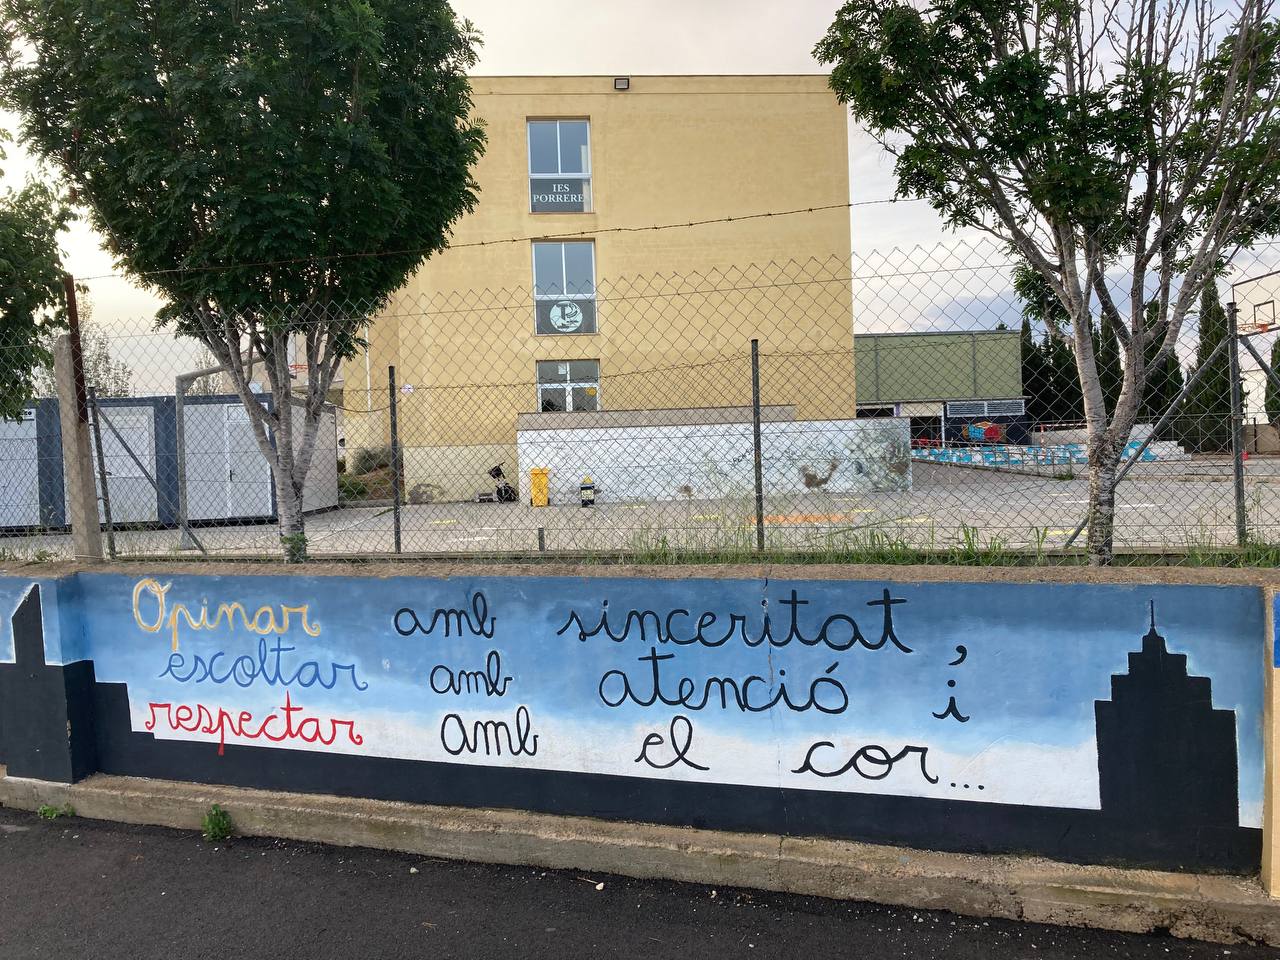 IES
PORRERE
Opinar amb sinceritat,
escoltar amb atenció i
respectar amb el cor...